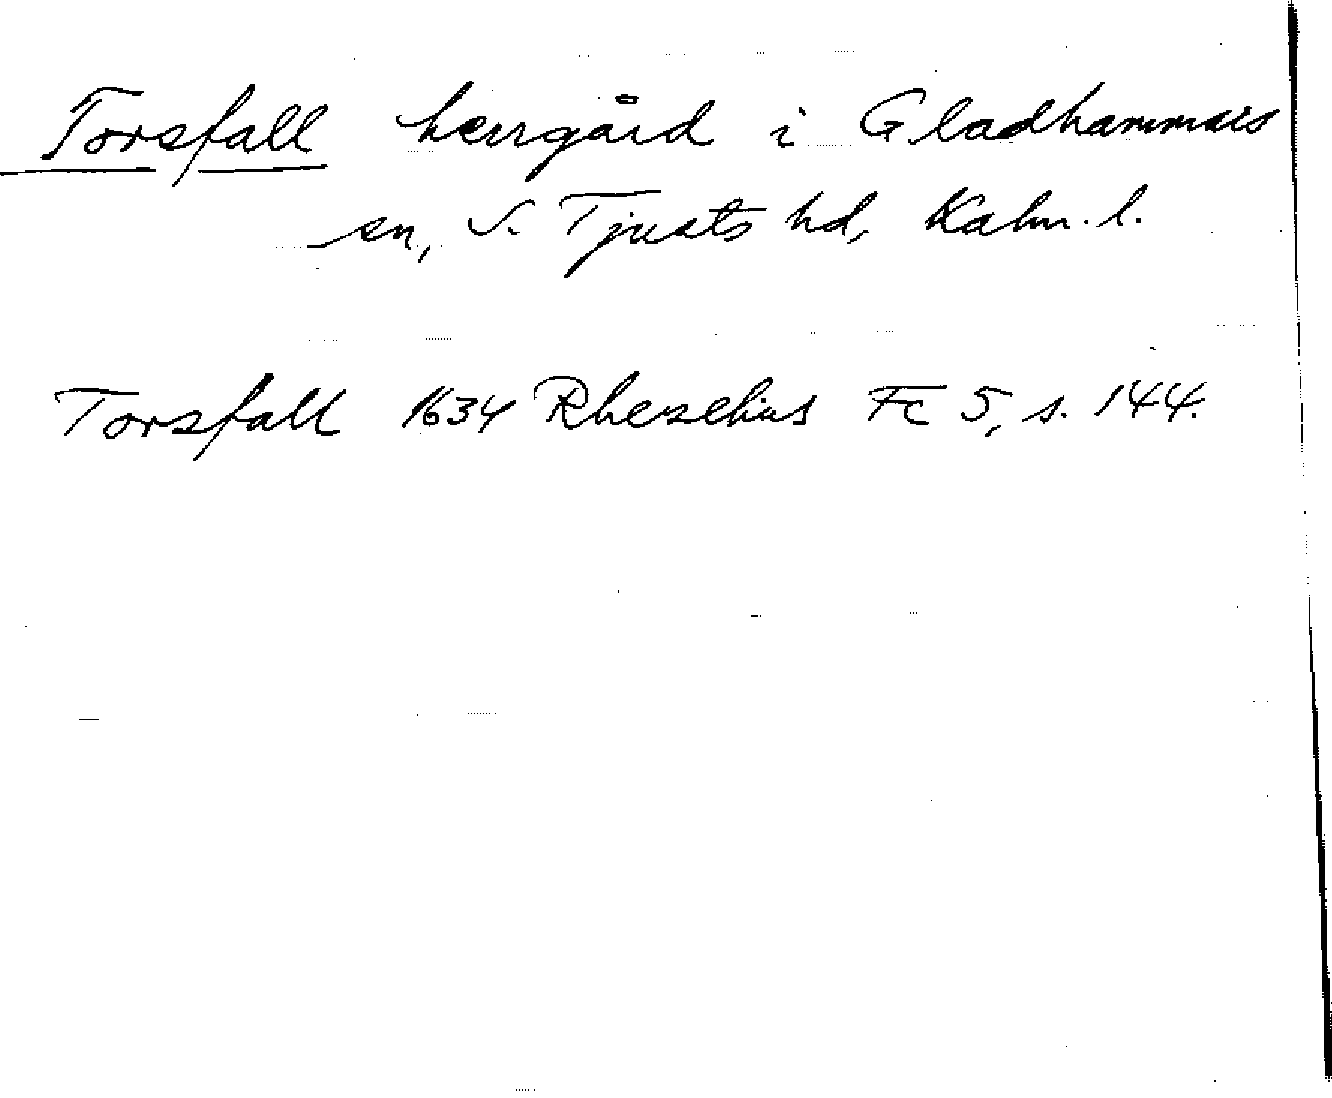 Torsfall herrgård i Gladhammars
sn, S. Tjusts hd, Kalm. l.
Torsfall 1634 Rhezelius Fc 5, s. 144.